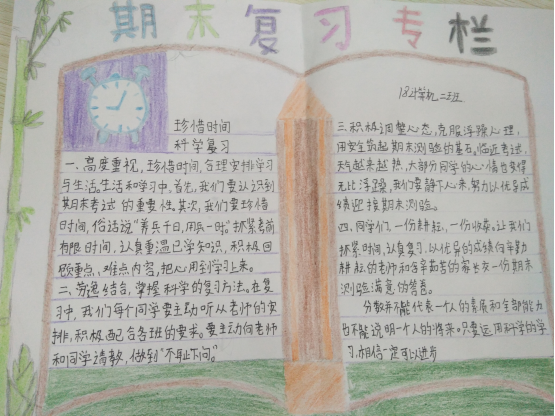 期末复习专栏
珍惜时间
科学复习
一、高度重视,珍惜时间,合理安排学习
与生活,生活和学习中,首先,我们要认识到
期末考试的重要性,其次,我们要珍惜
时间,俗话说"养兵千日,用兵一时"抓紧考前
有限时间,认真重温已学知识,积极回
顾重点、难点内容,把心用到学习上来。
二、劳逸结合,掌握科学的复习方法。在复
习中,我们每个同学要主动听从老师的安
排,积极配合各班的要求。要主动向老师
和同学请教,做到"不耻下问"。
18计算机二班
三、积极调整心态,克服浮躁心理,
用安全筑起期末测验的基石,临近考试,
天气越来越热,大部分同学的心情也变得
无比浮躁,我们要静下心来,努力以优异成
绩迎接期末测验。
四、同学们,一份耕耘,一份收获。让我们
抓紧时间,认真复习,以优异的成绩向辛勤
耕耘的老师和含辛茹苦的家长交一份期末
测验满意的答卷。
分数并不能代表一个人的素质和全部能力
也不能说明一个人的将来。只要运用科学的学
习,相信一定可以进步